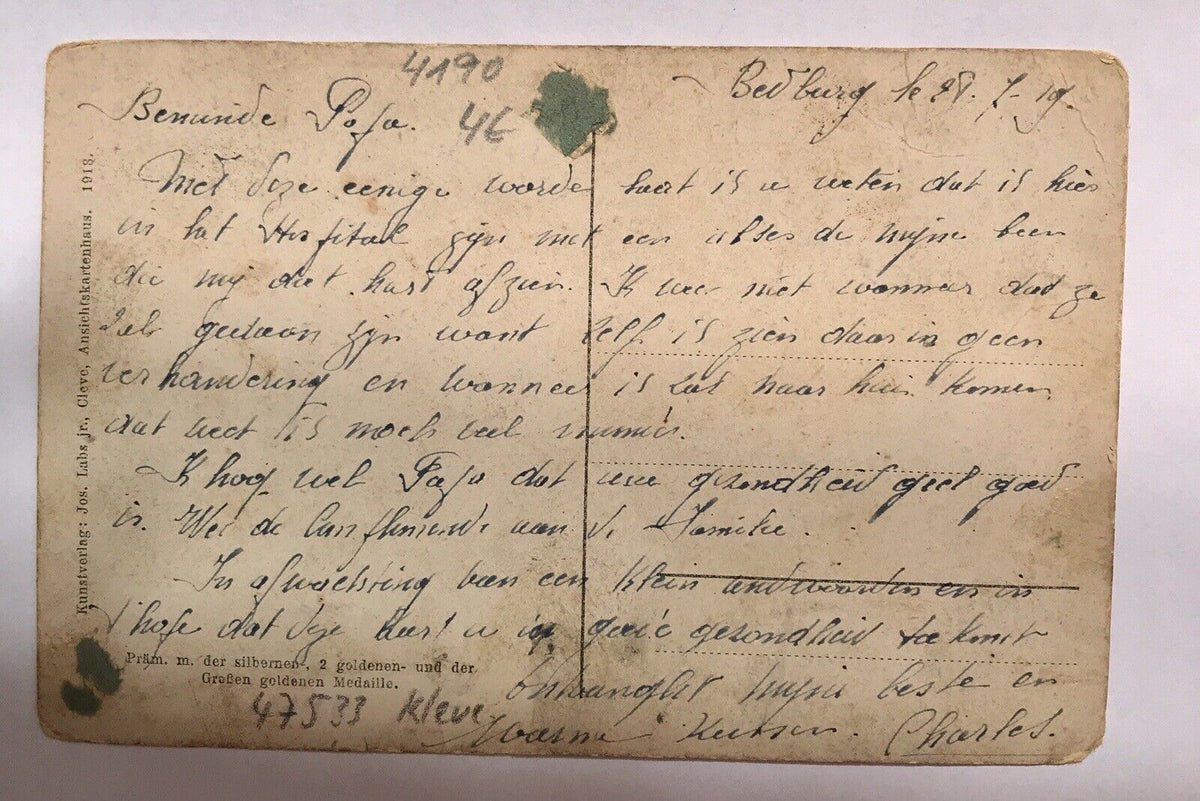 4190
4€
Bedburg le 28. 7 - 19.
Beminde Papa.
Met deze eenige woorde laat is u weten dat is hier
in het Hospitaal zyn met een abses de mijne been
die mij dat hart afzien. Ik weet niet wanneer dat ze
zal gedaan zyn want zelf is zien daar in geen
verhandering en wanneer is zal naar huis komen
dat weet is noch veel
Ik hop wel Papa dat uwe gezondheid geel goed
is. de aan de Familie.
In afwachting van een klein andwoorden en in
t'hope dat deze kart u in goeie gezondheid toekomt
ontvanght mijne beste en
Warme Kussen. Charles.
Kunstverlag: Jos. Labs jr., Cleve, Ansichtskartenhaus. 1918.
Präm. m. der silbernen-, 2 goldenen- und der
Großen goldenen Medaille.
47533 Kleve